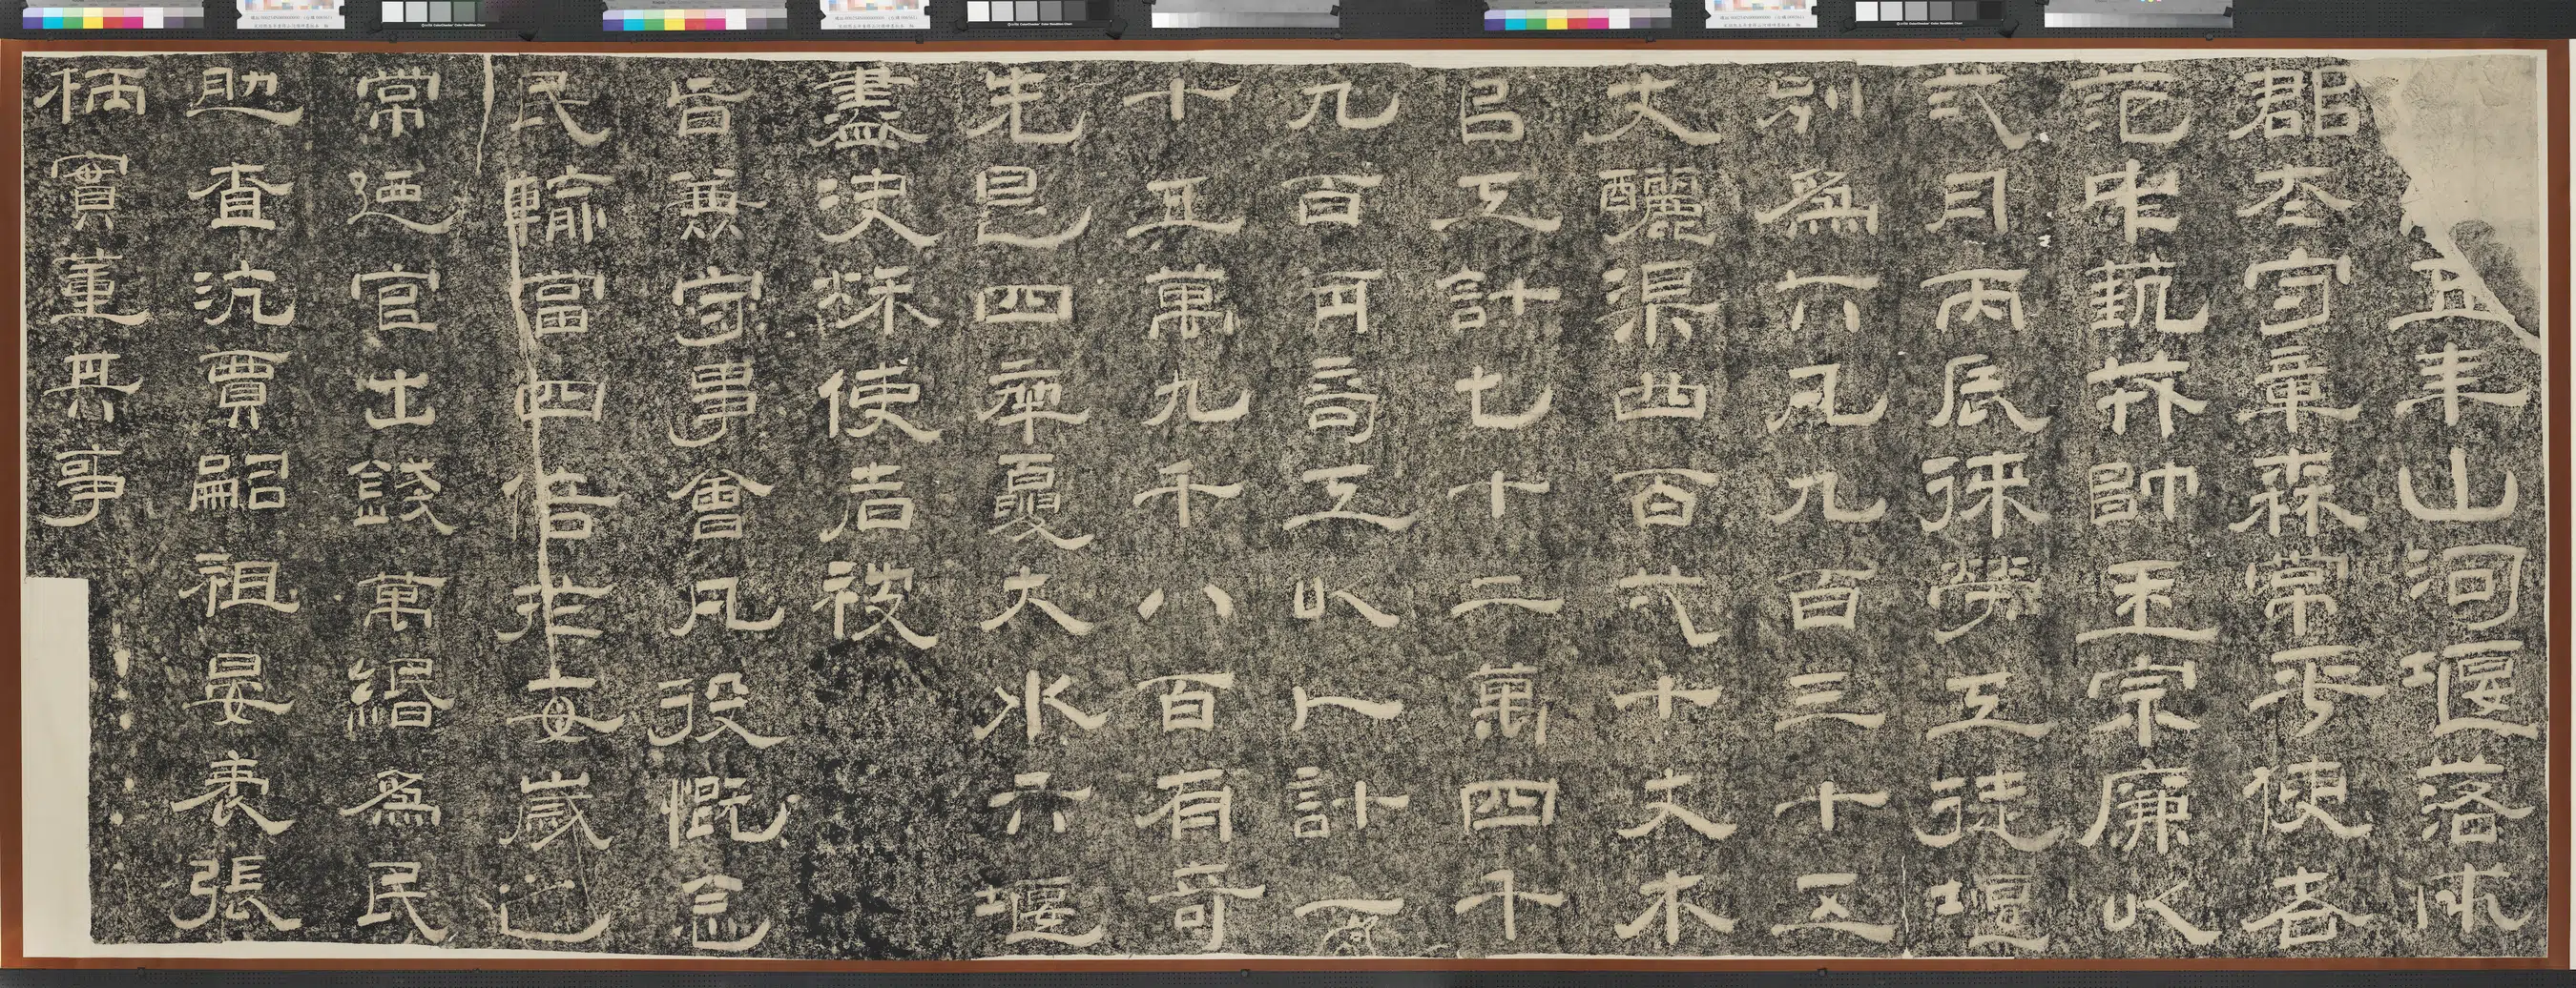 五年山河堰落成
郡太守章森常平使者
范中蓺戎帥王宗廉以
弍月丙辰徠勞工徒堰
別為六凡九百三十五
丈釃渠四百弌十丈木
以工計七十二萬四千
九百有奇工以人計一
十五萬九千八百有奇
先是四年夏大水六堰
盡決秋使者被
旨兼守事會凡役慨念
民輸當四倍於每歲之
常迺官出錢萬緡為民
助查沆賈嗣祖晏袤張
柄實董其事